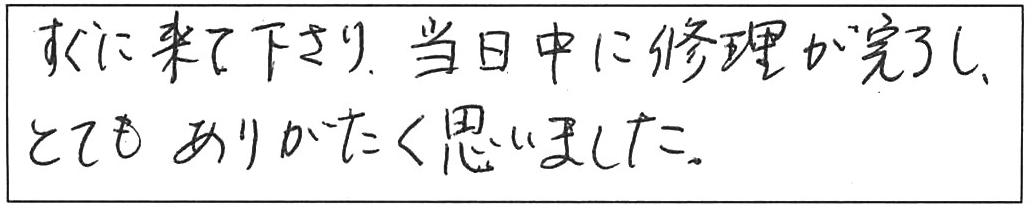 すぐに来て下さり、当日中に修理が完了し、
とても ありがたく思いました。